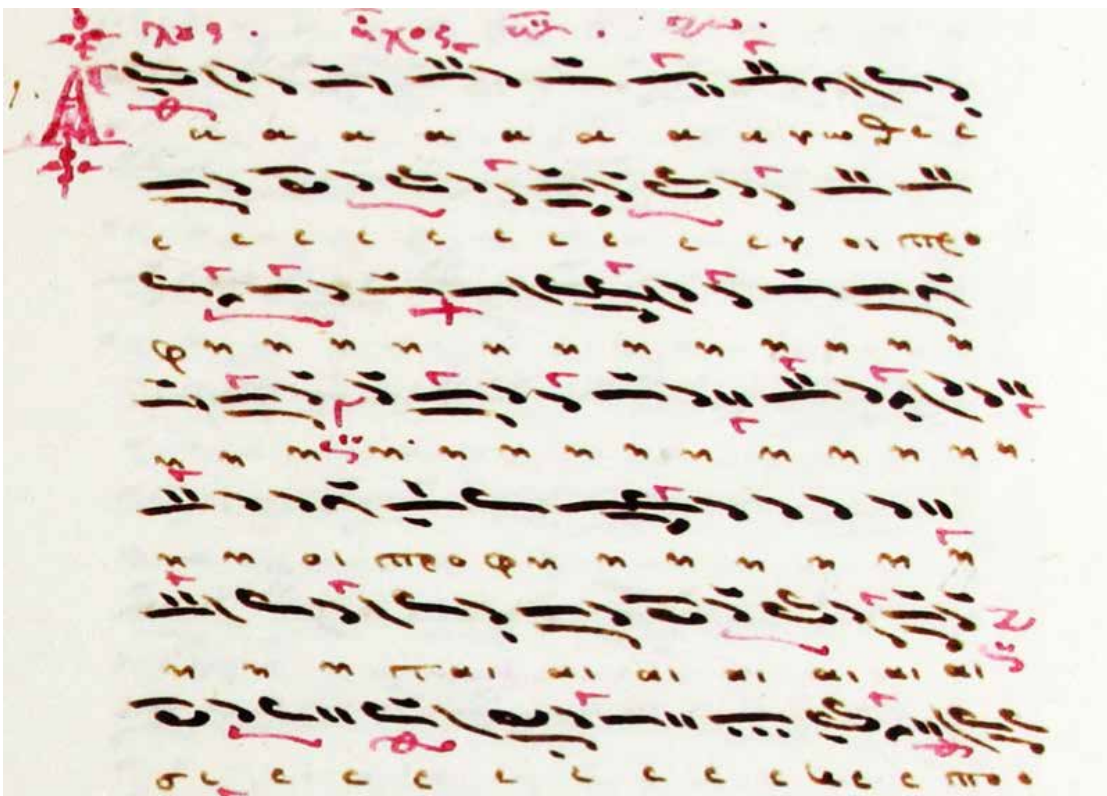 Α α α α α α α α α νω θε ε
ε ε ε ε ε ε ε ε ε ε ν οι προ
φη η η η η η η η η η η η
η η η η η η η η η η η η η η
η η οι προ φη η η η η η η
η η η ται αι αι αι αι αι αι
σε ε ε ε ε ε ε ε ε ε ε ε προ